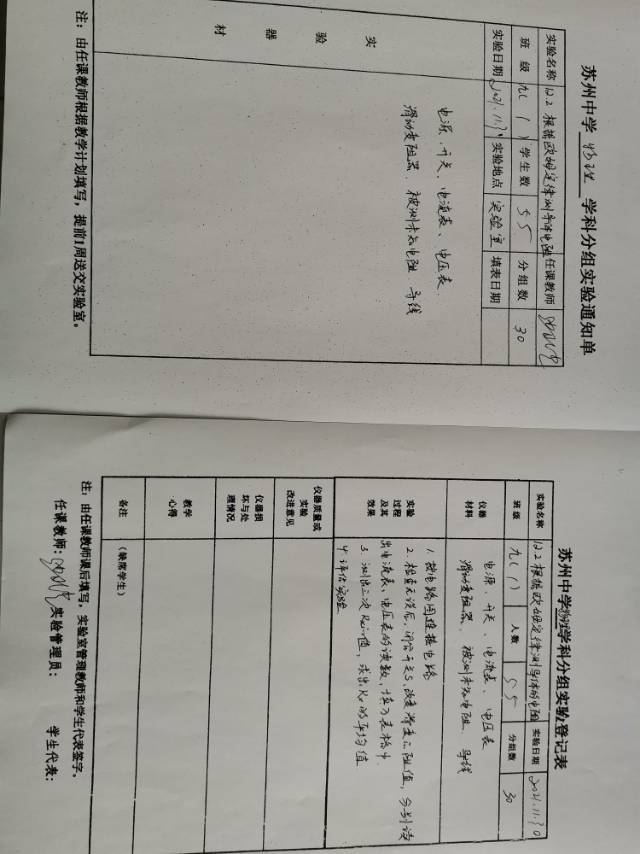 苏州中学 物理 学科分组实验通知单
实验名称 12.2 根据欧姆定律测导体电阻 任课教师
班 级 九(1) 学生数 55 分组数 30
实验日期 2021.11.30 实验地点 实验室 填表日期
实 验 器 材
电源、开关、电流表、电压表、
滑动变阻器、被测未知电阻 导线
注：由任课教师根据教学计划填写，提前1周送交实验室。
苏州中学物理学科分组实验登记表
实验名称 12.2 根据欧姆定律测导体的电阻 实验日期 2021.11.30
班级 九(1) 人数 55 分组数 30
仪器
材料
电源、开关、电流表、电压表
滑动变阻器、被测未知电阻、导线
实验
过程
及其
效果
1. 按电路图连接电路
2. 检查无误后，闭合开关S，改变滑变的阻值，分别读
出电流表、电压表的读数，填入表格中
3. 测出三次Rx值，求出Rx的平均值
4. 评估实验
仪器质量或
实验
改进意见
仪器损
坏与处
理情况
教学
心得
备注
（缺席学生）
注：由任课教师课后填写，实验室管理教师和学生代表签字。
任课教师： 实验管理员： 学生代表：